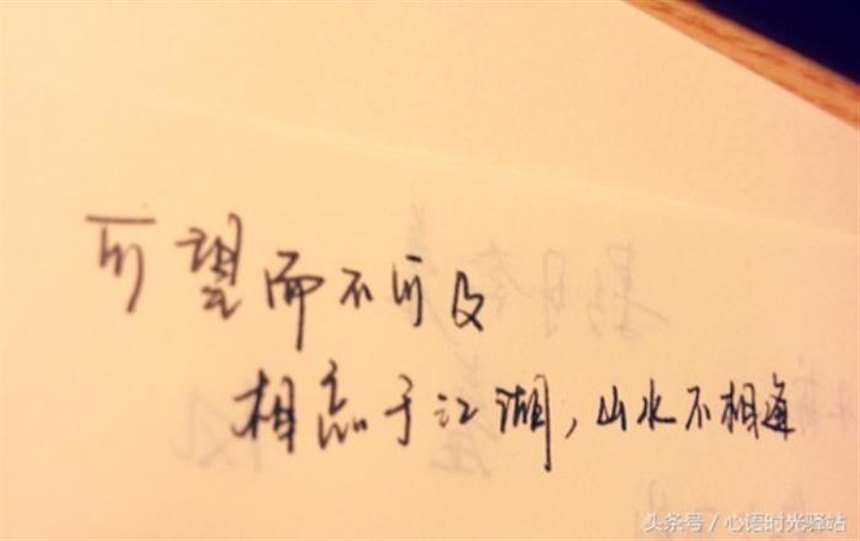 可望而不可及
相忘于江湖,山水不相逢
头条号/心语时光驿站